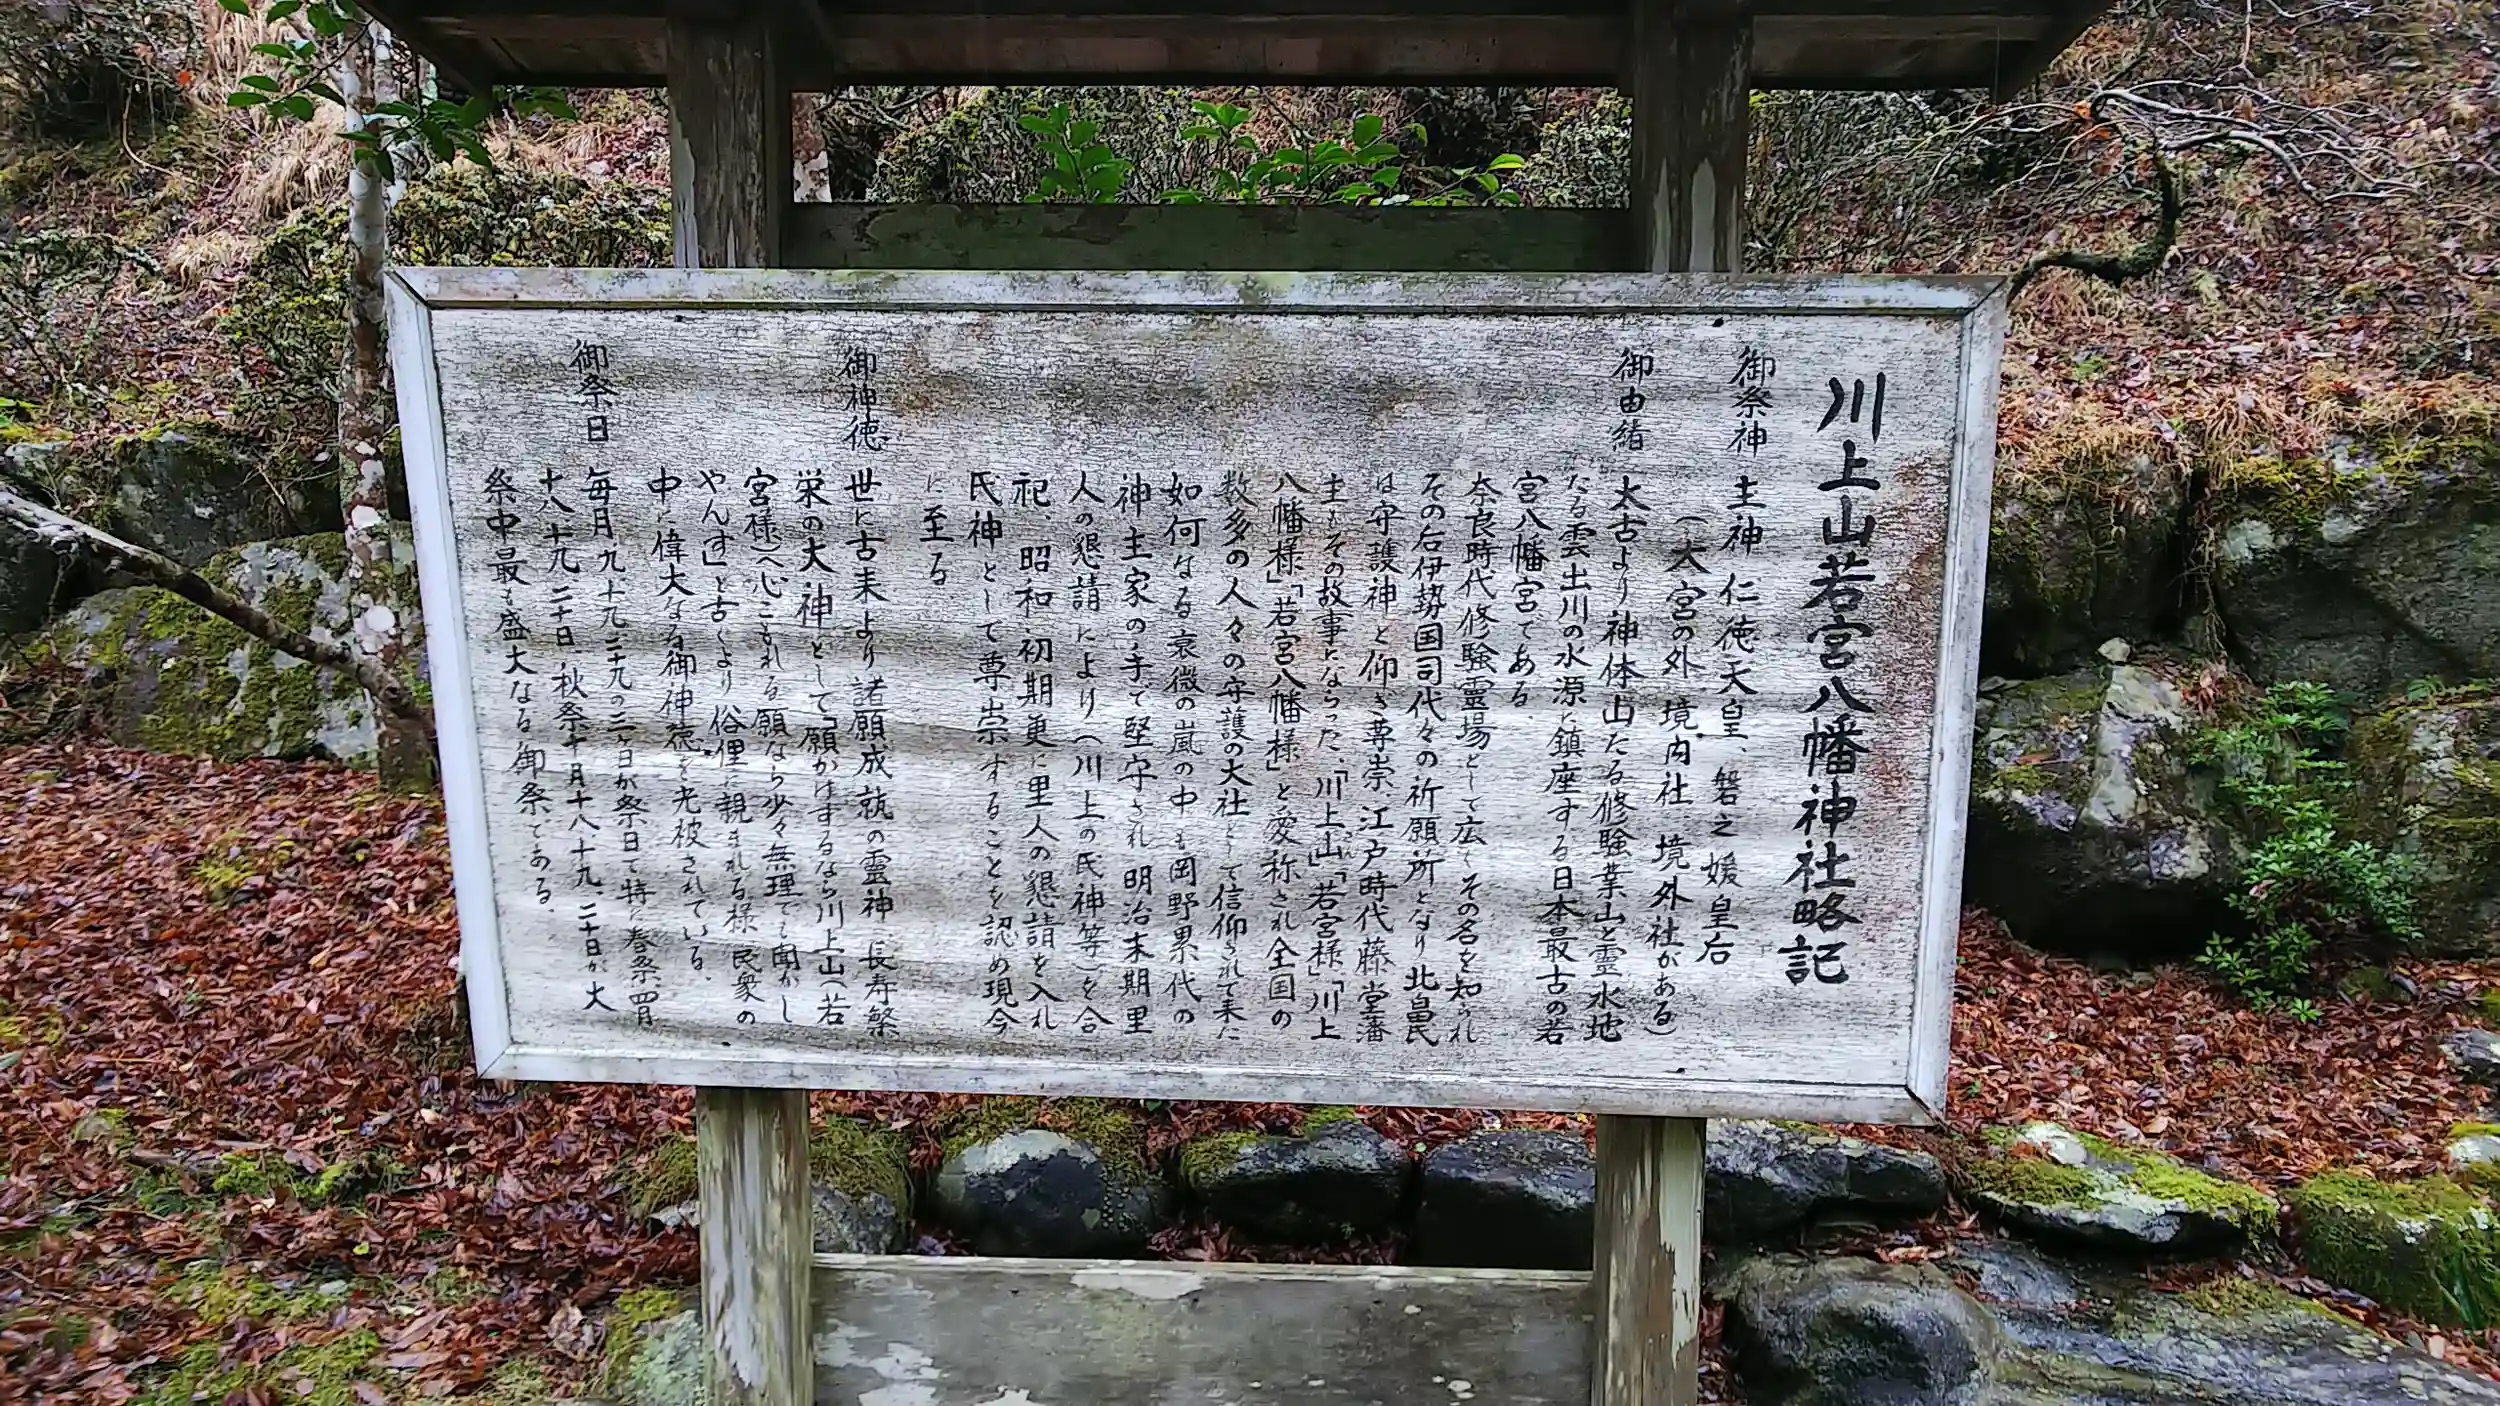 川上山若宮八幡神社略記
御祭神 主神 仁徳天皇、磐之媛皇后
(大宮の外、境内社、境外社がある)
御由緒 太古より神体山たる修験業山と霊水地
たる雲出川の水源に鎮座する日本最古の若
宮八幡宮である.
奈良時代修験霊場として広くその名を知られ
その后伊勢国司代々の祈願所となり北畠氏
は守護神と仰ぎ尊崇、江戸時代藤堂藩
主もその故事にならった.「川上山」「若宮様」「川上
八幡様」「若宮八幡様」と愛称され全国の
数多の人々の守護の大社として信仰されて来た
如何なる衰微の嵐の中も岡野累代の
神主家の手で堅守され 明治末期里
人の懇請により(川上の氏神等)を合
祀、昭和、初期更に里人の懇請を入れ
氏神として尊崇することを認め現今
に至る
御神徳 世に古来より諸願成就の霊神、長寿繁
栄の大神として「願かけするなら川上山(若
宮様)へ心こもれる願なら少々無理でも聞かし
やんす」と古くより俗俚に親まれる様 民衆の
中に偉大なる御神徳を光被されている.
御祭日 毎月 九、十九、二十九の三ヶ日が祭日で特に春祭、四月
十八、十九、二十日、秋祭十月十八、十九、二十日が大
祭中最も盛大なる御祭である.